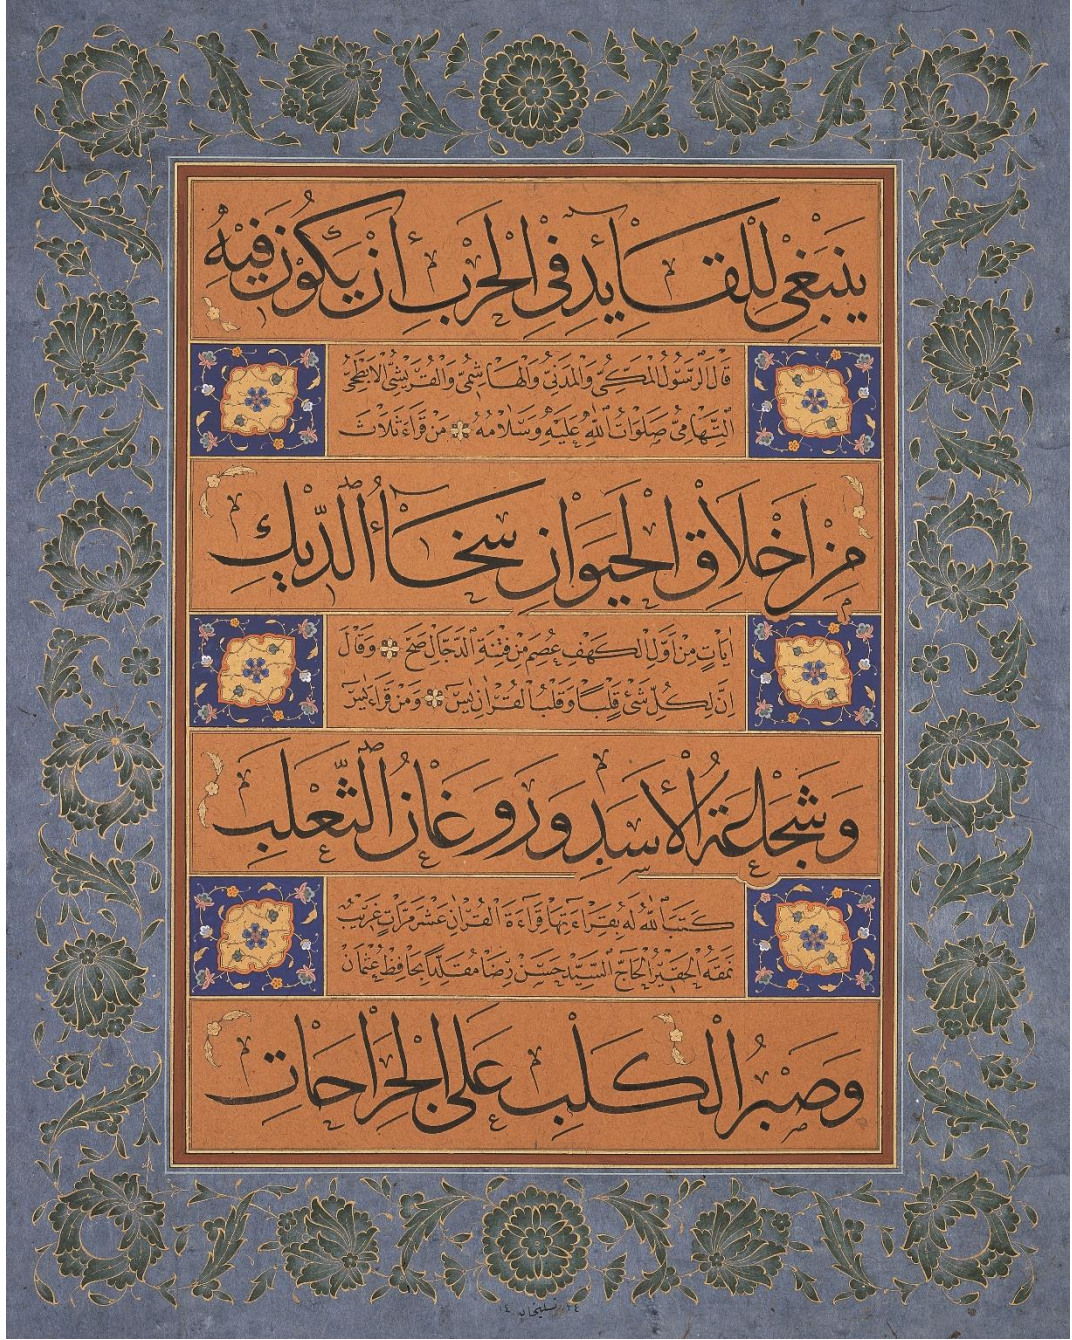 ينبغي للقايد في الحرب ان يكون فيه
قال الرسول المكي والمدني والهاشمي والقريشي الابطحي
التهامي صلوات الله عليه وسلامه من قراء ثلاث
من اخلاق الحيوان سخاء الديك
ايات من اول الكهف عصم من فتنة الدجال صح وقال
ان لكل شئ قلبا وقلب القران يس ومن قراء يس
وشجاعة الأسد وروغان الثعلب
كتب الله له بقراءتها قراءة القران عشر مرات غريب
نمقه الحقير الحاج السيد حسن رضا مقلدا بحافظ عثمان
وصبر الكلب على الجراحات